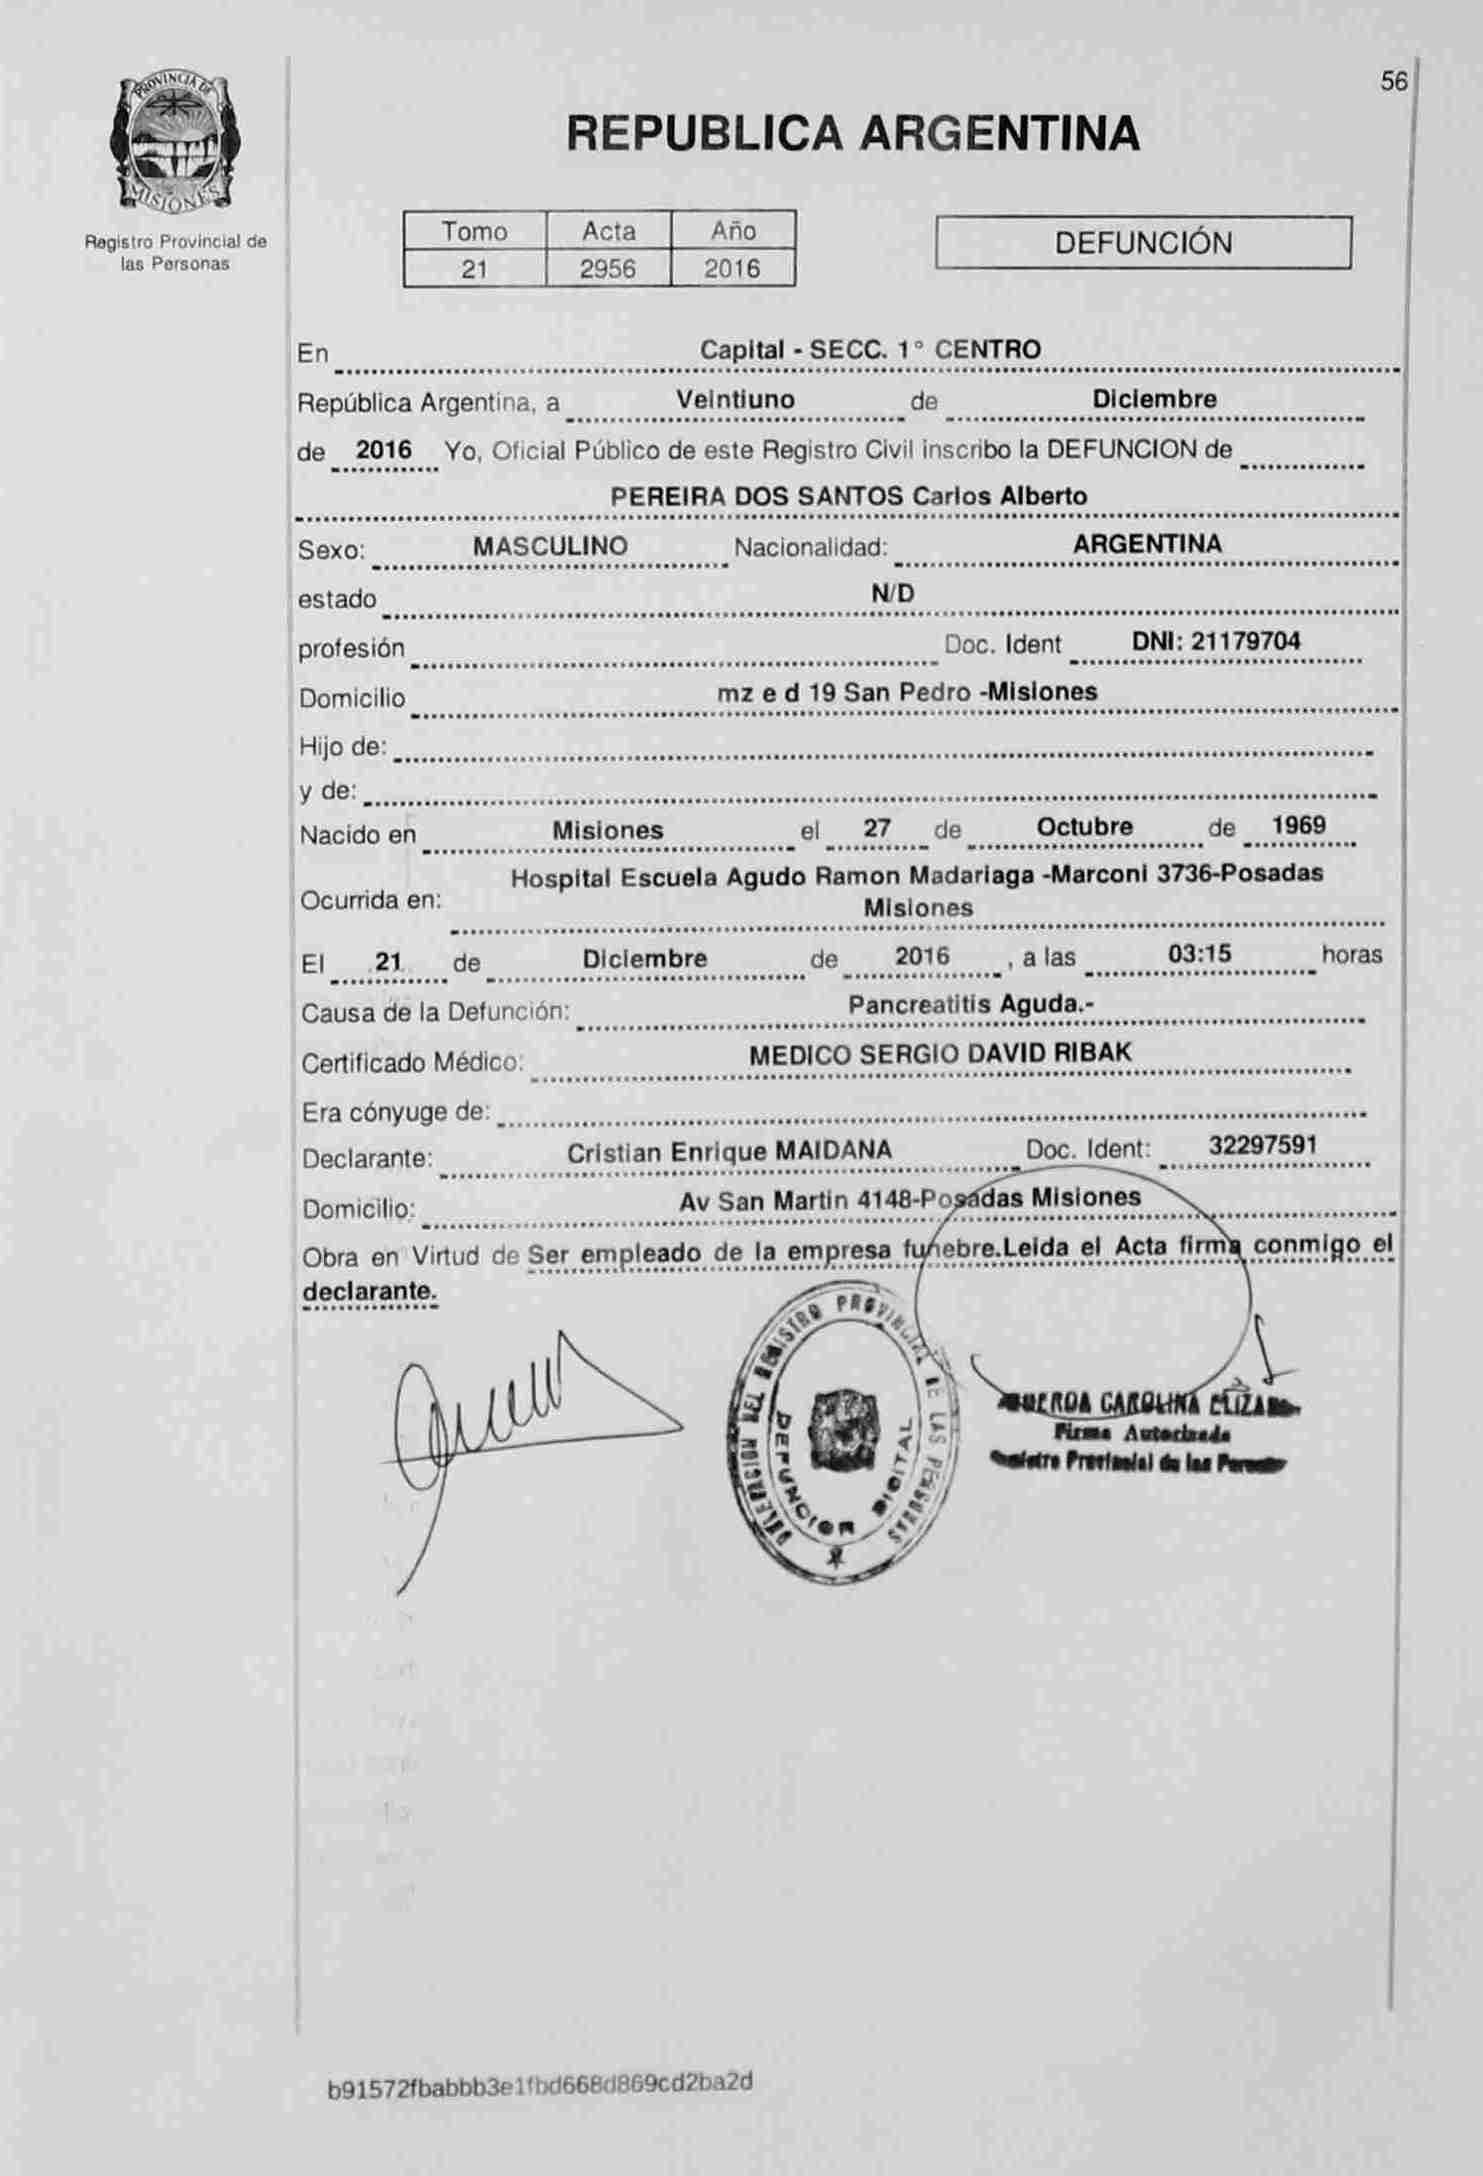 56
PROVINCIA DE
MISIONES
Registro Provincial de
las Personas
REPUBLICA ARGENTINA
Tomo Acta Año
21 2956 2016
DEFUNCIÓN
En Capital - SECC. 1° CENTRO
República Argentina, a Veintiuno de Diciembre
de 2016 Yo, Oficial Público de este Registro Civil inscribo la DEFUNCION de
PEREIRA DOS SANTOS Carlos Alberto
Sexo: MASCULINO Nacionalidad: ARGENTINA
estado N/D
profesión Doc. Ident DNI: 21179704
Domicilio mz e d 19 San Pedro -Misiones
Hijo de:
y de:
Nacido en Misiones el 27 de Octubre de 1969
Hospital Escuela Agudo Ramon Madariaga -Marconi 3736-Posadas
Ocurrida en: Misiones
El 21 de Diciembre de 2016 , a las 03:15 horas
Causa de la Defunción: Pancreatitis Aguda.-
Certificado Médico: MEDICO SERGIO DAVID RIBAK
Era cónyuge de:
Declarante: Cristian Enrique MAIDANA Doc. Ident: 32297591
Domicilio: Av San Martin 4148-Posadas Misiones
Obra en Virtud de Ser empleado de la empresa funebre.Leida el Acta firma conmigo el
declarante.
DELEGACION DEL REGISTRO PROVINCIAL DE LAS PERSONAS
DEFUNCION DIGITAL
CAROLINA
Firma Autorizada
Provincial de las
b91572fbabbb3e1fbd668d869cd2ba2d